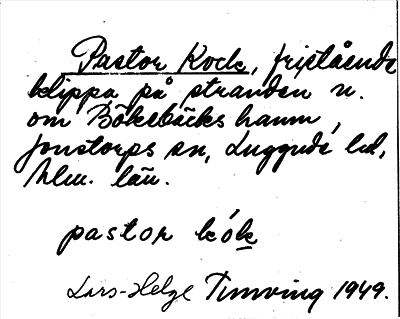 Pastor Kock, fristående
klippa på stranden n.
om Bökebäcks hamn,
Jonstorps sn, Luggude hd,
Mlm. län.
pastor kók
Lars-Helge Tunving 1949.